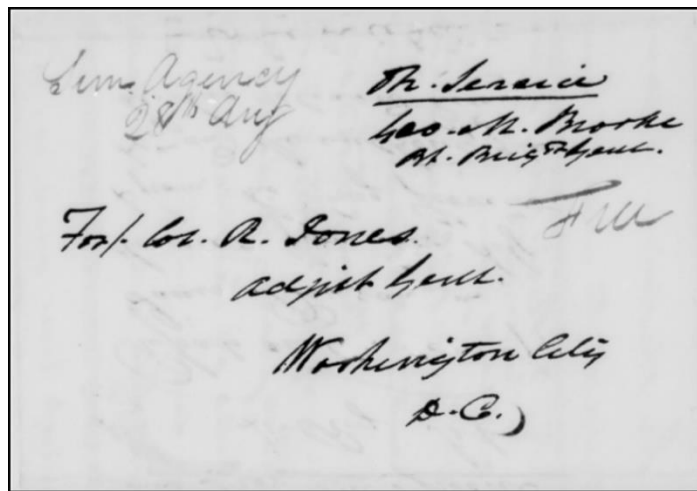 Sem. Agency
28th Aug
On. Service
Geo. M. Brooke
Bt. Brigr Genl.
Free
For/. Col. R. Jones.
adjut Genl.
Washington City
D.C.)